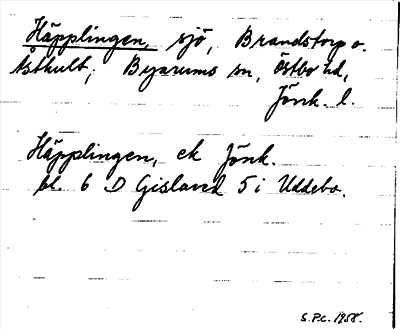 Häpplingen, sjö, Brandstorp o.
Åstkult; Byarums sn, Östbo hd,
Jönk. l.
Häpplingen, ek Jönk.
bl. 6 D Gislaved 5 i Uddebo.
S.P.c. 1958.